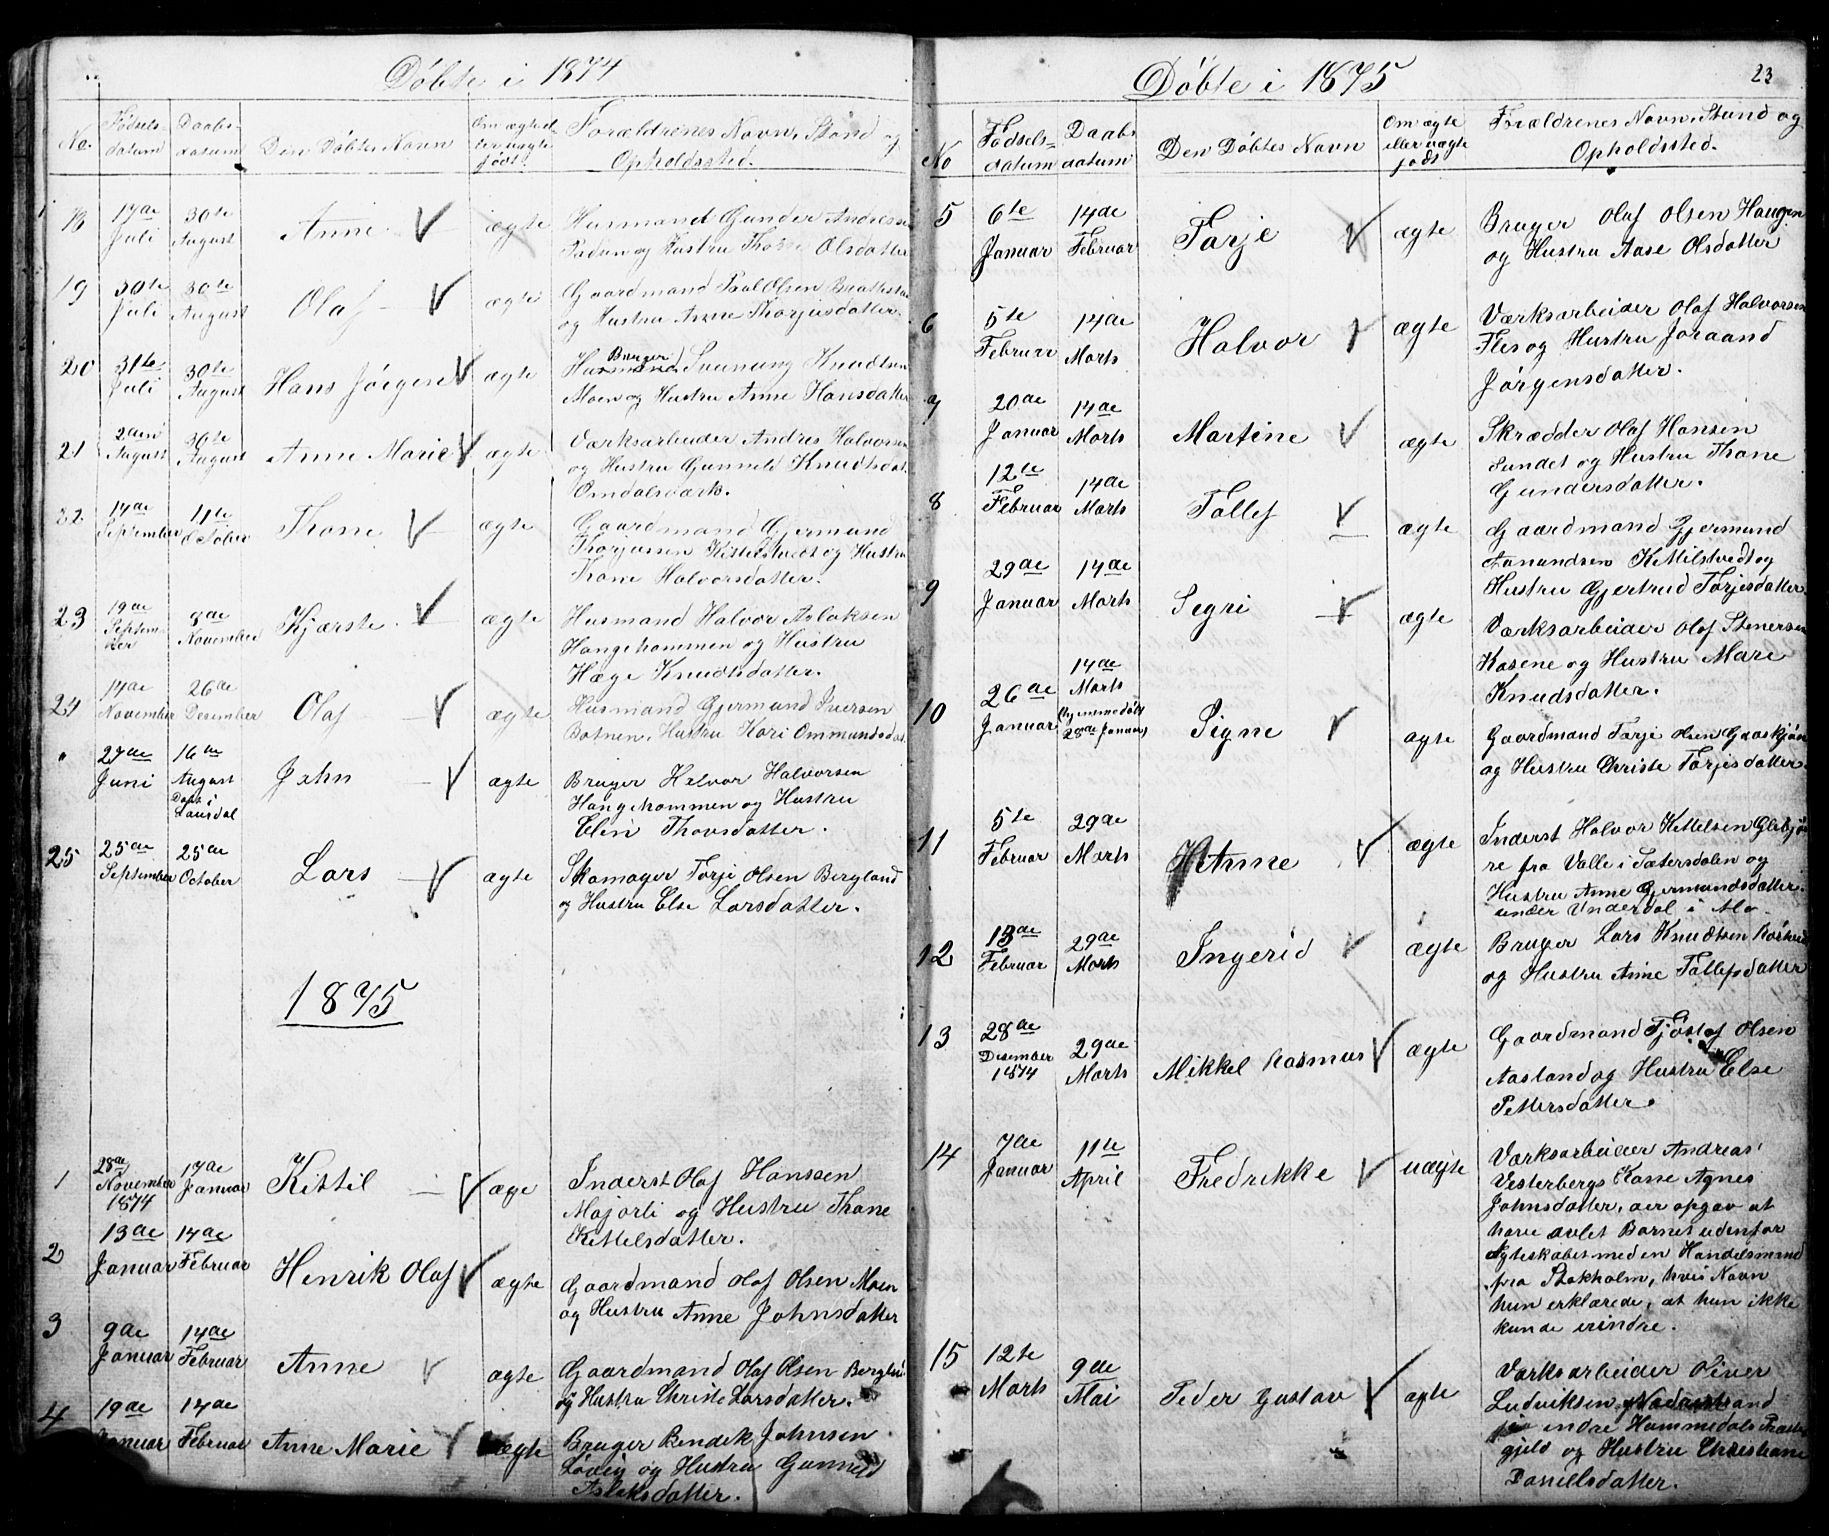 Döbte i 1874
No.
Fødsels-
datum
Daabs-
datum
Den Döbtes Navn
Om ægte el-
ler uægte
født.
Forældrenes Navn, Stand og
Opholdssted.
18
17de
Juli
30te
August
Anne
ægte
Husmand Gunder Andressen
og Hustru Thone Olsdatter
19
30te
Juli
30te
August
Olaf
ægte
Gaardmand Paal Olsen
og Hustru Anne Thorjusdatter.
20
31te
Juli
30te
August
Hans Jørgen
ægte
Bruger
Husmand Sveinung Knudtsen
Moen og Hustru Anne Hansdatter
21
2den
August
30te
August
Anne Marie
ægte
Værksarbeider Andres Halvorsen
og Hustru Gunneld Knudtsdat.
Omdalsværk.
22
14de
September
11te
October
Thone
ægte
Gaardmand Gjermund
Thorjusen Kittelstvedt og Hustru
Thone Halvorsdatter.
23
19de
Septem-
ber
8de
November
Kjærste
ægte
Husmand Halvor Aslaksen
Hangekommen og Hustru
Hæge Knudtsdatter.
24
14de
November
26de
Desember
Olaf
ægte
Husmand Gjermund Iversen
Botnen, Hustru Kari Ommundsdat.
27de
Juni
16de
August
Døbt i
Laurdal
John
ægte
Bruger Halvor Halvorsen
Hangekommen og Hustru
Elen Thovsdatter.
25
25de
September
25de
October
Lars
ægte
Skomager Torje Olsen Bergland
og Hustru Else Larsdatter.
1875
1
28de
November
1874
17de
Januar
Kittil
æge
Inderst Olaf Hanssen
Majorli og Hustru Thone
Kittelsdatter.
2
13de
Januar
14de
Februar
Henrik Olaf
ægte
Gaardmand Olaf Olsen Moen
og Hustru Anne Johnsdatter
3
9de
Januar
14de
Februar
Anne
ægte
Gaardmand Olaf Olsen Bergland
og Hustru Christi Larsdatter.
4
19de
Januar
14de
Februar
Anne Marie
ægte
Bruger Bendek Johnsen
Løvig og Hustru Gunneld
Aslaksdatter.
Döbte i 1875
23
No
Fødsels-
datum
Daabs
datum
Den Döbtes Navn
Om ægte
eller uægte
født
Forældrenes Navn, Stand og
Opholdssted.
5
6te
Januar
14de
Februar
Torje
ægte
Bruger Olaf Olsen Haugen
og Hustru Aase Olsdatter
6
5te
Februar
14de
Marts
Halvor
ægte
Værksarbeider Olaf Halvorsen
Flis og Hustru Joraand
Jørgensdatter.
7
20de
Januar
14de
Marts
Martine
ægte
Skrædder Olaf Hansen
Sundet og Hustru Thone
Gundersdatter.
8
12te
Februar
14de
Marts
Tollef
ægte
Gaardmand Gjermund
Aanundsen Kittilstvedt og
Hustru Gjertrud Torjesdatter
9
29de
Januar
14de
Marts
Segri
ægte
Værksarbeider Olaf Stenersen
Kasene og Hustru Mari
Knudsdatter.
10
26de
Januar
14de
Marts
Hjemmedøbt
28de Januar
Signe
ægte
Gaardmand Torje Olsen
og Hustru Christe Torjesdatter.
11
5te
Februar
29de
Marts
Anne
ægte
Inderst Halvor Kittelsen Glibjø-
re fra Valle i Sætersdalen og
Hustru Anne Gjermundsdatter
under Underdal i Mo
12
13de
Februar
29de
Marts
Ingerid
ægte
Bruger Lars Knudtsen
og Hustru Anne Tollefsdatter
13
28de
Desember
1874
29de
Marts
Mikkel Rasmus
ægte
Gaardmand Tjøstof Olsen
Aasland og Hustru Else
Pettersdatter.
14
7de
Januar
11te
April
Fredrikke
uægte
Værksarbeider Andreas
Vesterbergs Kone Agnes
Johnsdatter, der opgav at
have avlet Barnet udenfor
Ægteskabet med en Handelsmand
fra Stokholm, hvis Navn
hun erklærede, at hun ikke
kunde erindre.
15
12te
Marts
9de
Mai
Peder Gustav
ægte
Værksarbeider Oliver
Ludviksen
indre Hammedals Præste-
gjeld og Hustru Christiane
Daniellsdatter.